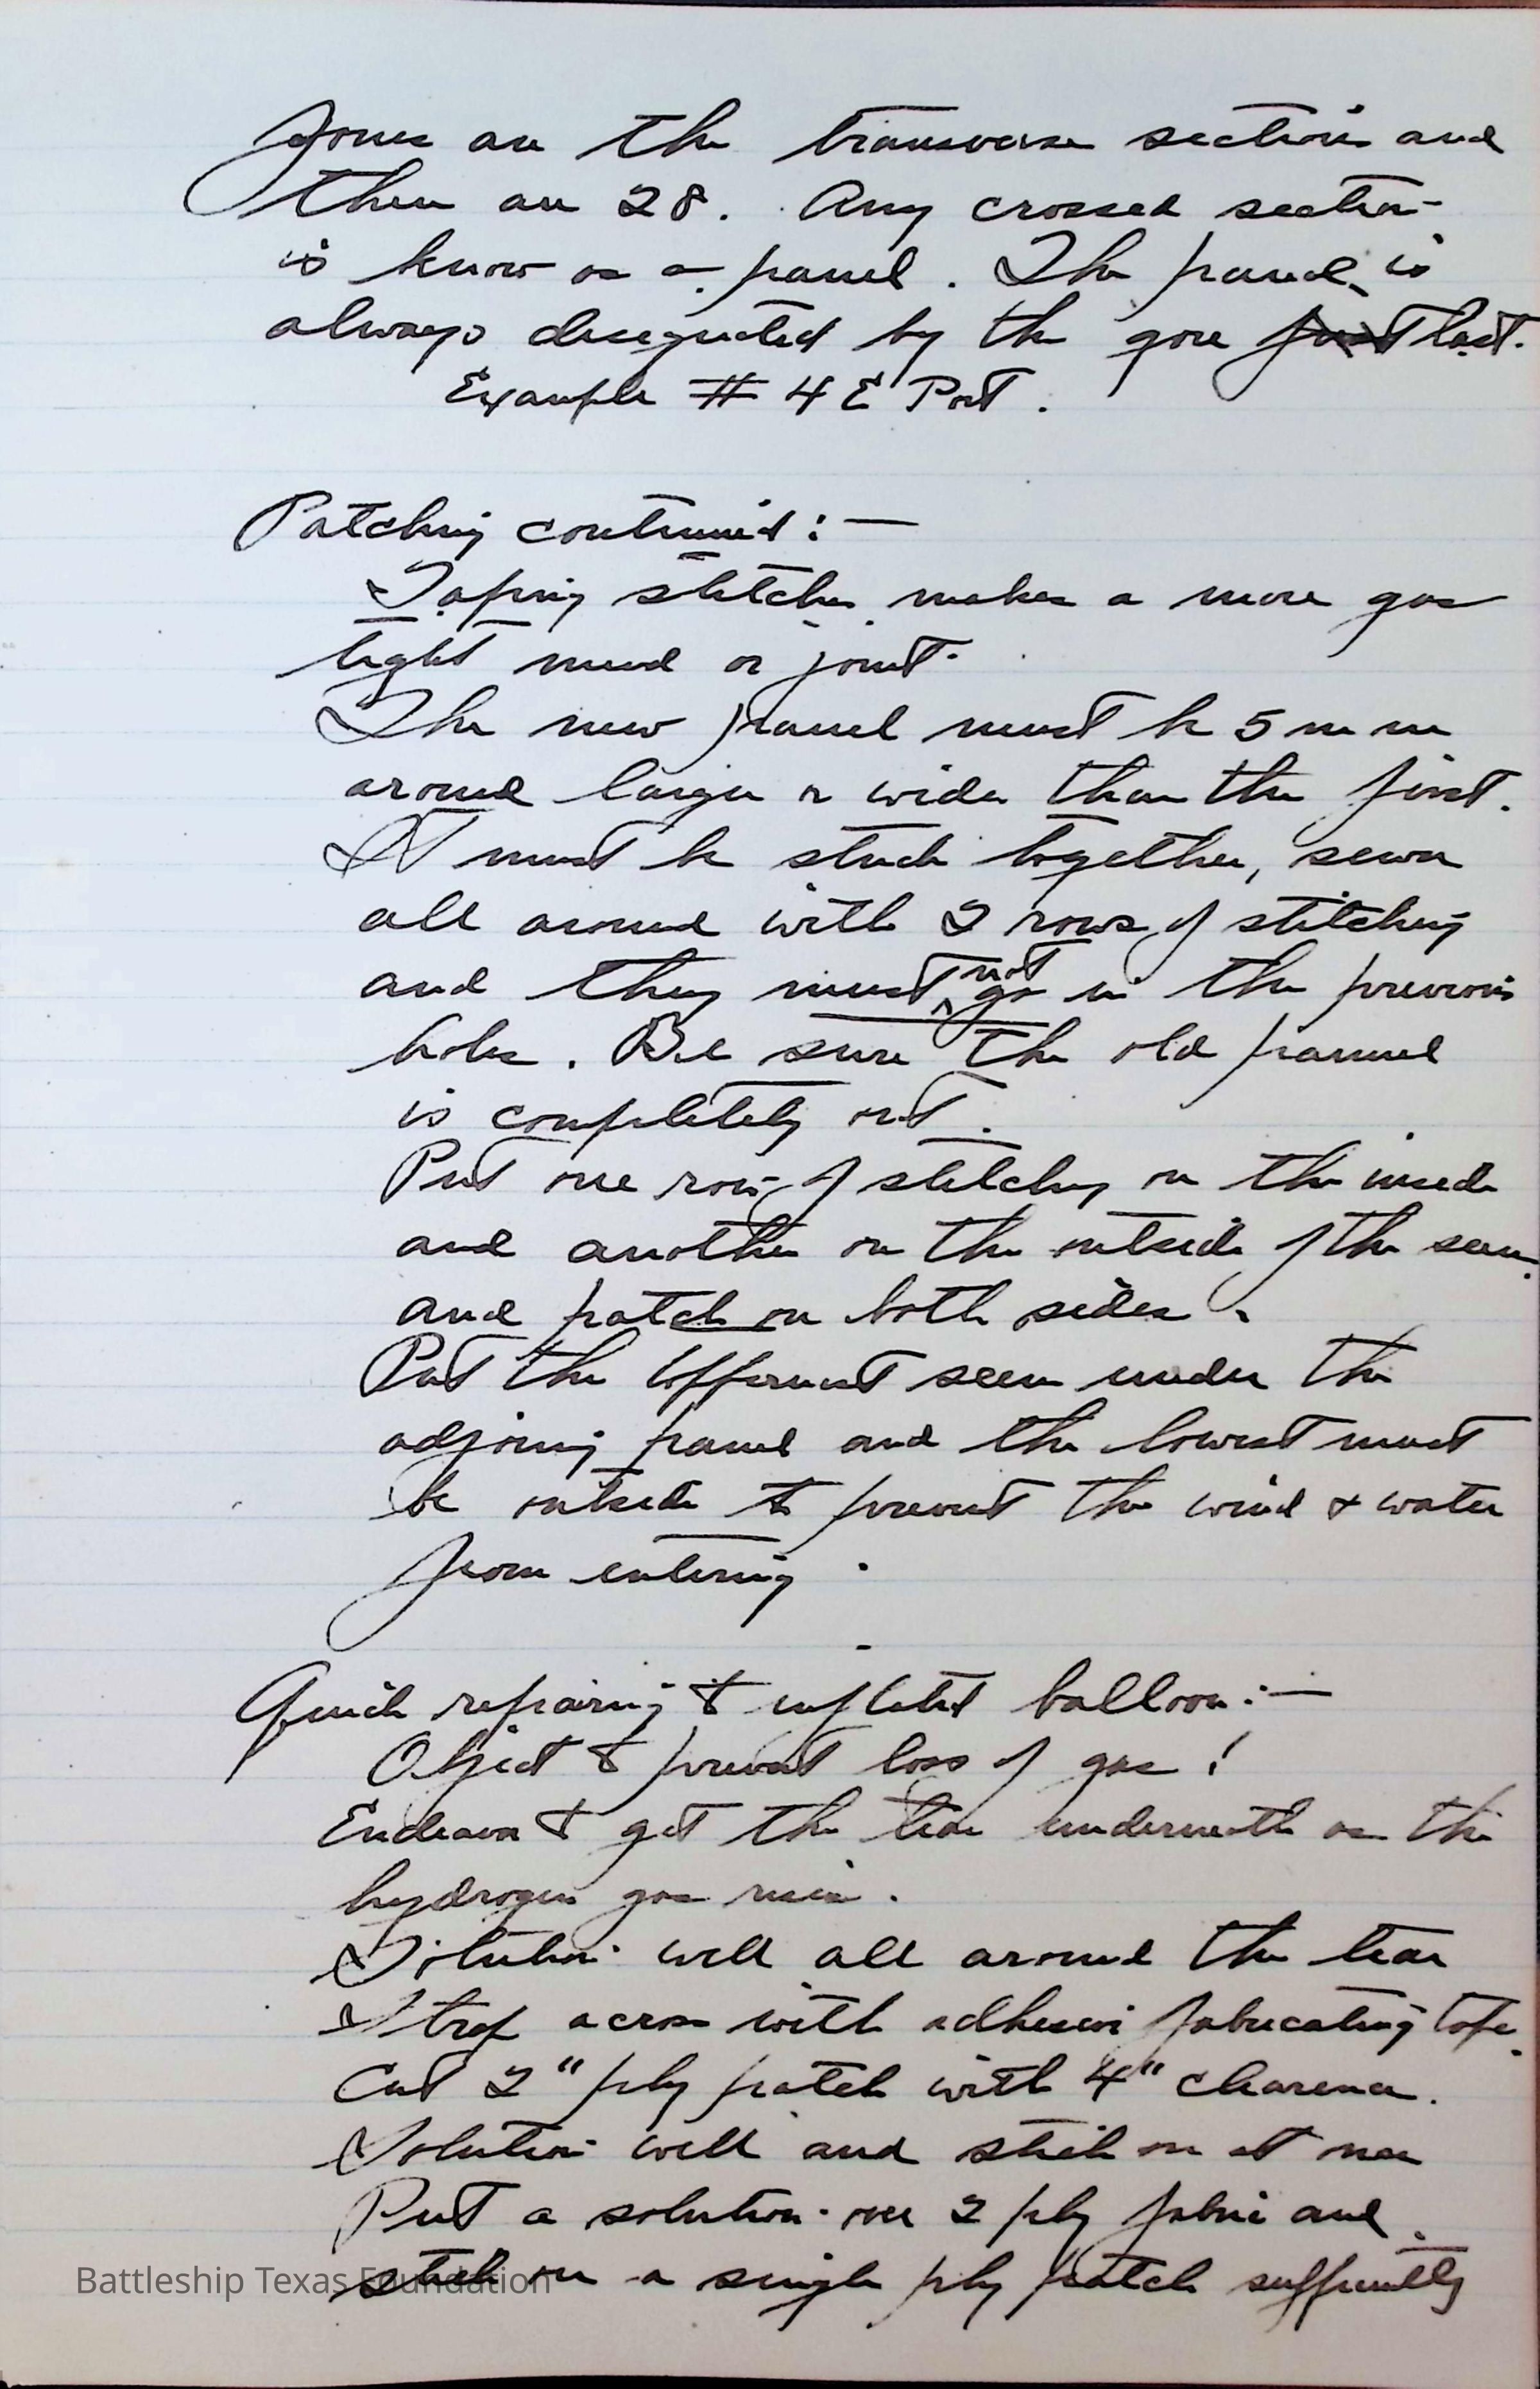 Gores are the transverse sections and
there are 28. Any crossed section
is know as a panel. The panel is
always designated by the gore last.
Example # 4 E Port.
Patching continued :—
Taping stitches makes a more gas
tight mend or joint.
The new pannel must be 5 m m
around larger or wider than the first.
It must be stuck together, sewn
all around with 2 rows of stitching
and they must not go in the previous
holes. Be sure the old pannel
is completely out.
Put one row of stitching on the inside
and another on the outside of the seam
and patch on both sides.
Put the uppermost seem under the
adjoing panel and the lowest must
be outside to prevent the wind & water
from entering.
Quick repairing to inflated balloon :—
Object to prevent loss of gas!
Endeavor to get the tear underneath as the
hydrogen gas rises.
Solution well all around the tear
Strap across with adhesive fabricating tape.
Cut 2" ply patch with 4" clearance.
Solution well and stick on at once
Put a solution over 2 ply fabric and
stick on a single ply patch
Battleship Texas Foundation